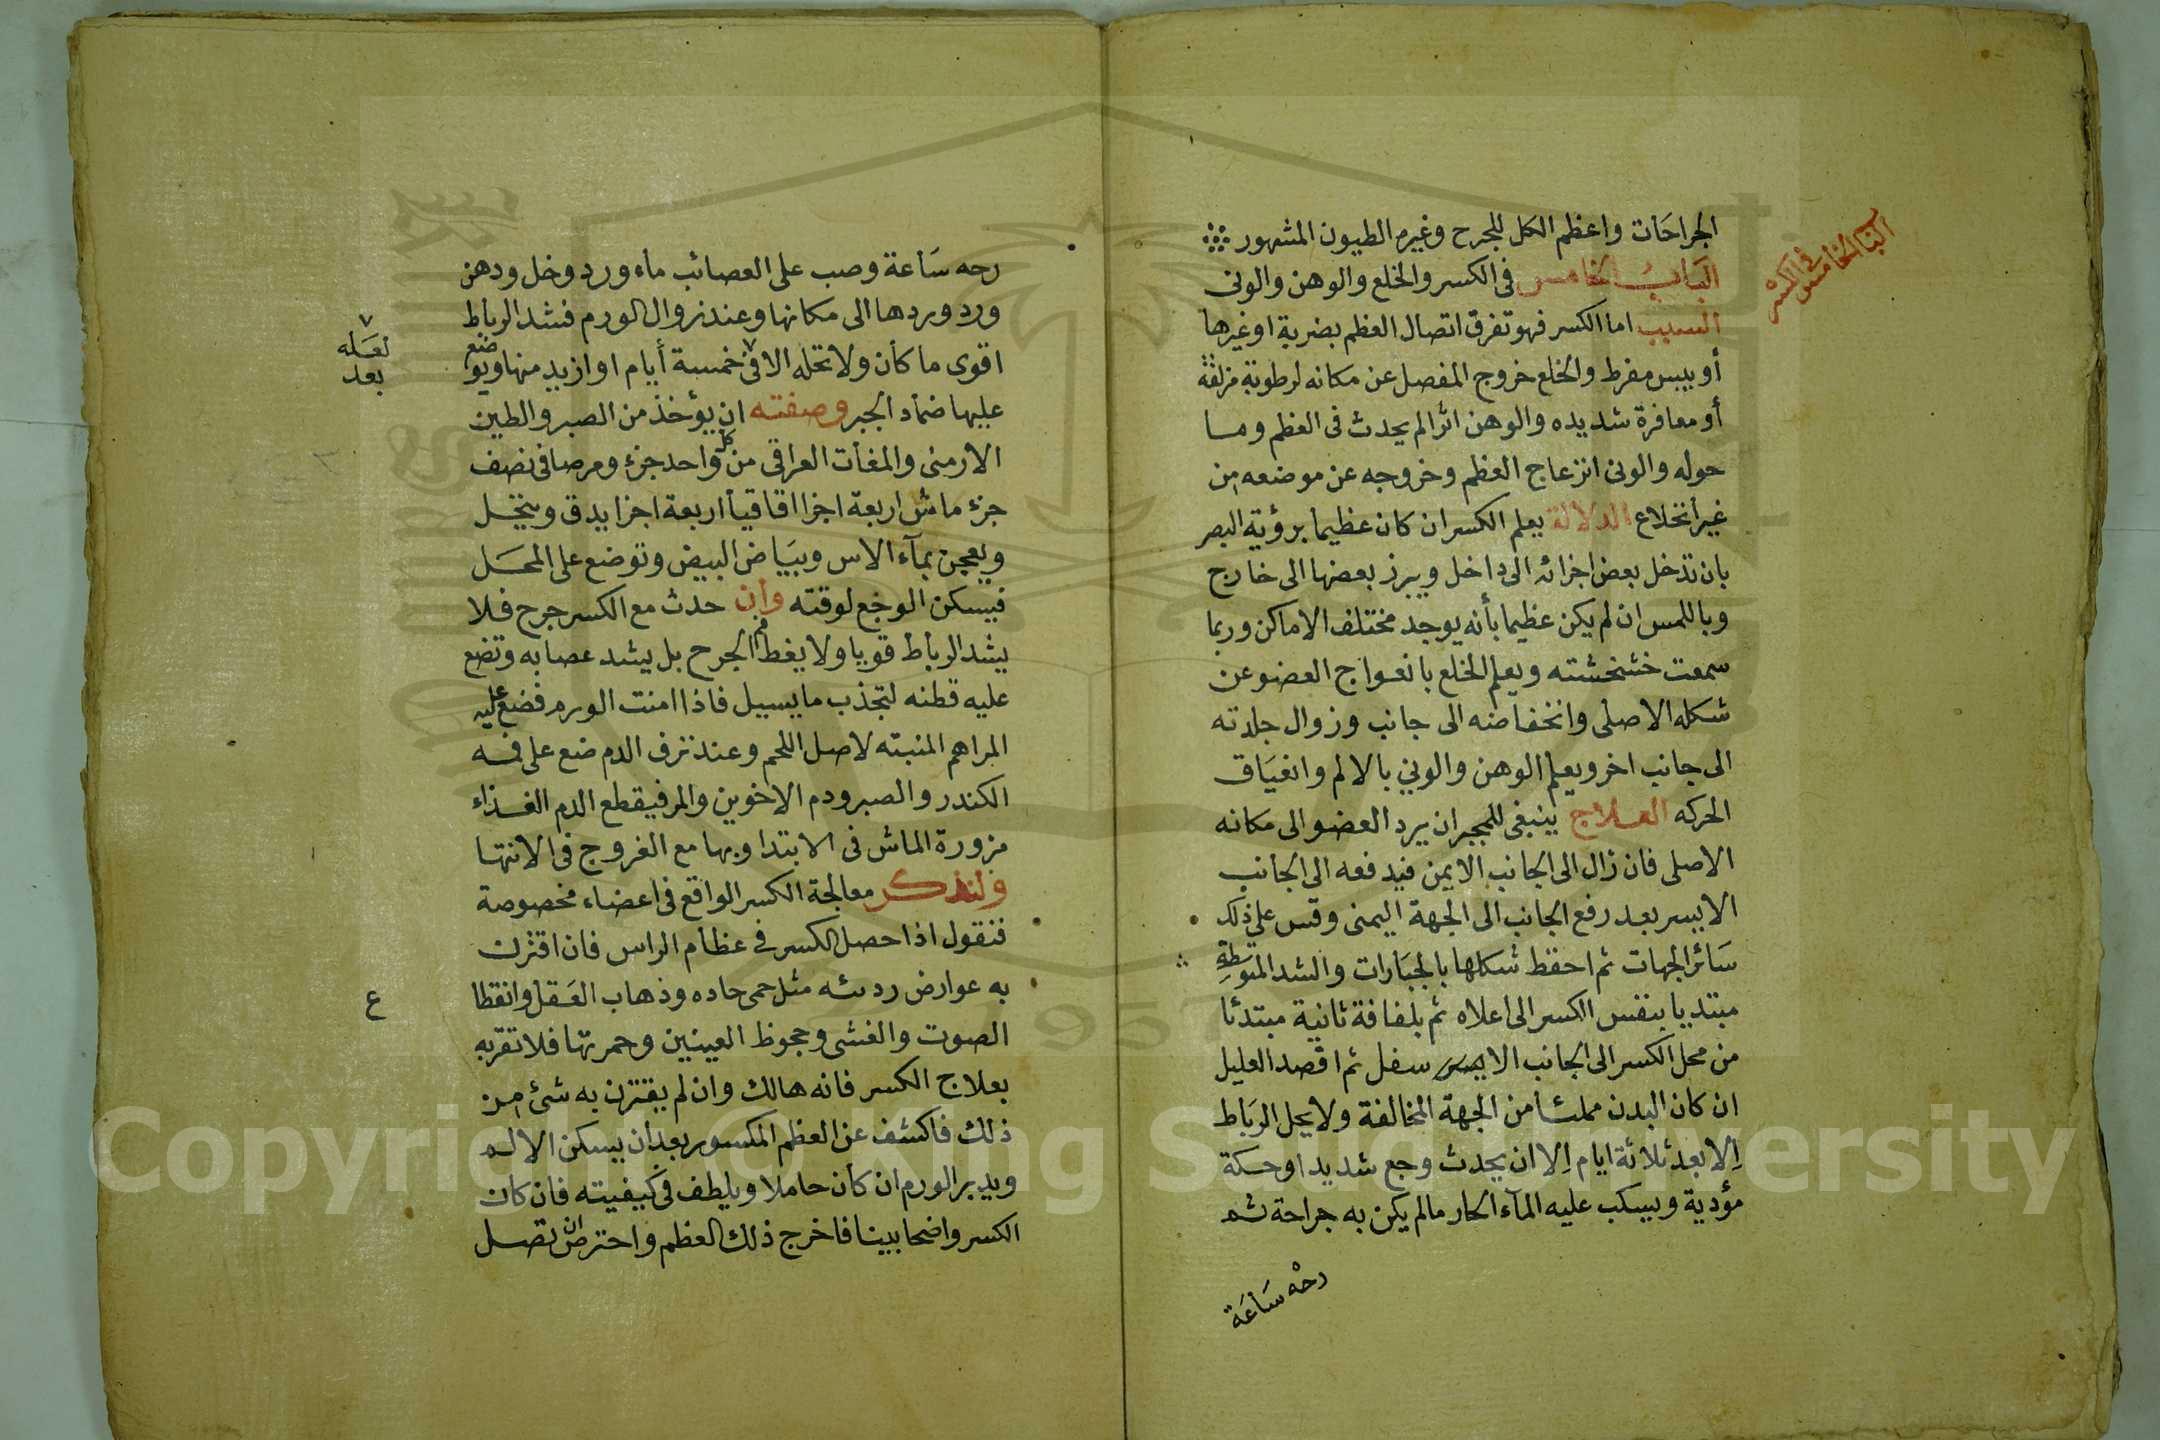 الجراحَات واعظم الكل للجرح وغيره الطيون المشهور
البَابُ الخامس في الكسر والخلع والوهن والونى
السبب اما الكسر فهو تفرق اتصال العظم بضربة اوغيرها
أو بيبس مفرط والخلع خروج المفصل عن مكانه لرطوبة مزلقة
أو معافرة شديده والوهن اثر الم يحدث فى العظم وما
حوله والونى انزعاج العظم وخروجه عن موضعه من
غير أنخلاع الدلالة يعلم الكسر ان كان عظيما برؤية البصر
بان تدخل بعض اجزائه الى داخل ويبرز بعضها الى خارج
وباللمس ان لم يكن عظيما بأنه يوجد مختلف الاماكن وربما
سمعت خشخشته ويعلم الخلع بانعواج العضو عن
شكله الاصلى وانخفاضه الى جانب وزوال جلدته
الى جانب اخر ويعلم الوهن والوني بالالم وانعيَاق
الحركه العلاج ينبغى للمجبر ان يرد العضو الى مكانه
الاصلى فان زال الى الجانب الايمن فيدفعه الى الجانب
الايسر بعد رفع الجانب الى الجهة اليمنى وقس على ذلك
سَائر الجهات ثم احفظ شكلها بالجبَارات والشد المتوسطة
مبتديا بنفس الكسر الى اعلاه ثم بلفافة ثانية مبتدئا
من محل الكسر الى الجانب الا سفل ثم افصد العليل
ان كان البدن ممتلئا من الجهة المخالفة ولا يحل الربَاط
اِلا بعد ثلاثة ايام اِلا ان يحدث وجع شديد او حكة
مؤدية ويسكب عليه الماء الحار مالم يكن به جراحة ثم
رحه سَاعَة
البَاب الخامس في الكسر
رحه سَاعة وصب على العصائب ماء ورد وخل ودهن
ورد وردها الى مكانها وعند زوال الورم فشد الرباط
اقوى ما كان ولا تحله الا فى خمسة أيام او ازيد منها ويوضع
عليها ضماد الجبر وصفته ان يؤخذ من الصبر والطين
الارمنى والمغات العراقى من كل واحد جزء ومرصافى نصف
جزء ماش اربعة اجزا اقاقيا اربعة اجزا يدق وينخل
ويعجن بمآء الاس وببيَاض البيض وتوضع على المحَل
فيسكن الوجع لوقته وان حدث مع الكسر جرح فلا
يشد الرباط قويا ولا يغط فم الجرح بل يشد عصابه وتضع
عليه قطنه لتجذب ما يسيل فاذا امنت الورم فضع عليه
المراهم المنبته لاصل اللحم وعند نزف الدم ضع على فمه
الكندر والصبر ودم الاخوين والمر فيقطع الدم الغذاء
مزورة الماش فى الابتدا وبها مع الفروج فى الانتها
ولنذكر معالجة الكسر الواقع فى اعضاء مخصوصة
فنقول اذا حصل الكسر في عظام الراس فان اقترن
به عوارض رديئه مثل حمى حاده وذهاب العَقل وانقطا
ع
الصوت والغشى وجحوظ العينين وحمرتها فلا تقربه
بعلاج الكسر فانه هالك وان لم يقترن به شئ من
ذلك فاكشف عن العظم المكسور بعد ان يسكن الالم
ويدبر الورم ان كان حاملا ويلطف فى كيفيته فان كان
الكسر واضحا بينا فاخرج ذلك العظم واحترص ان تصل
لعَله
بعد
Copyright © King Saud University